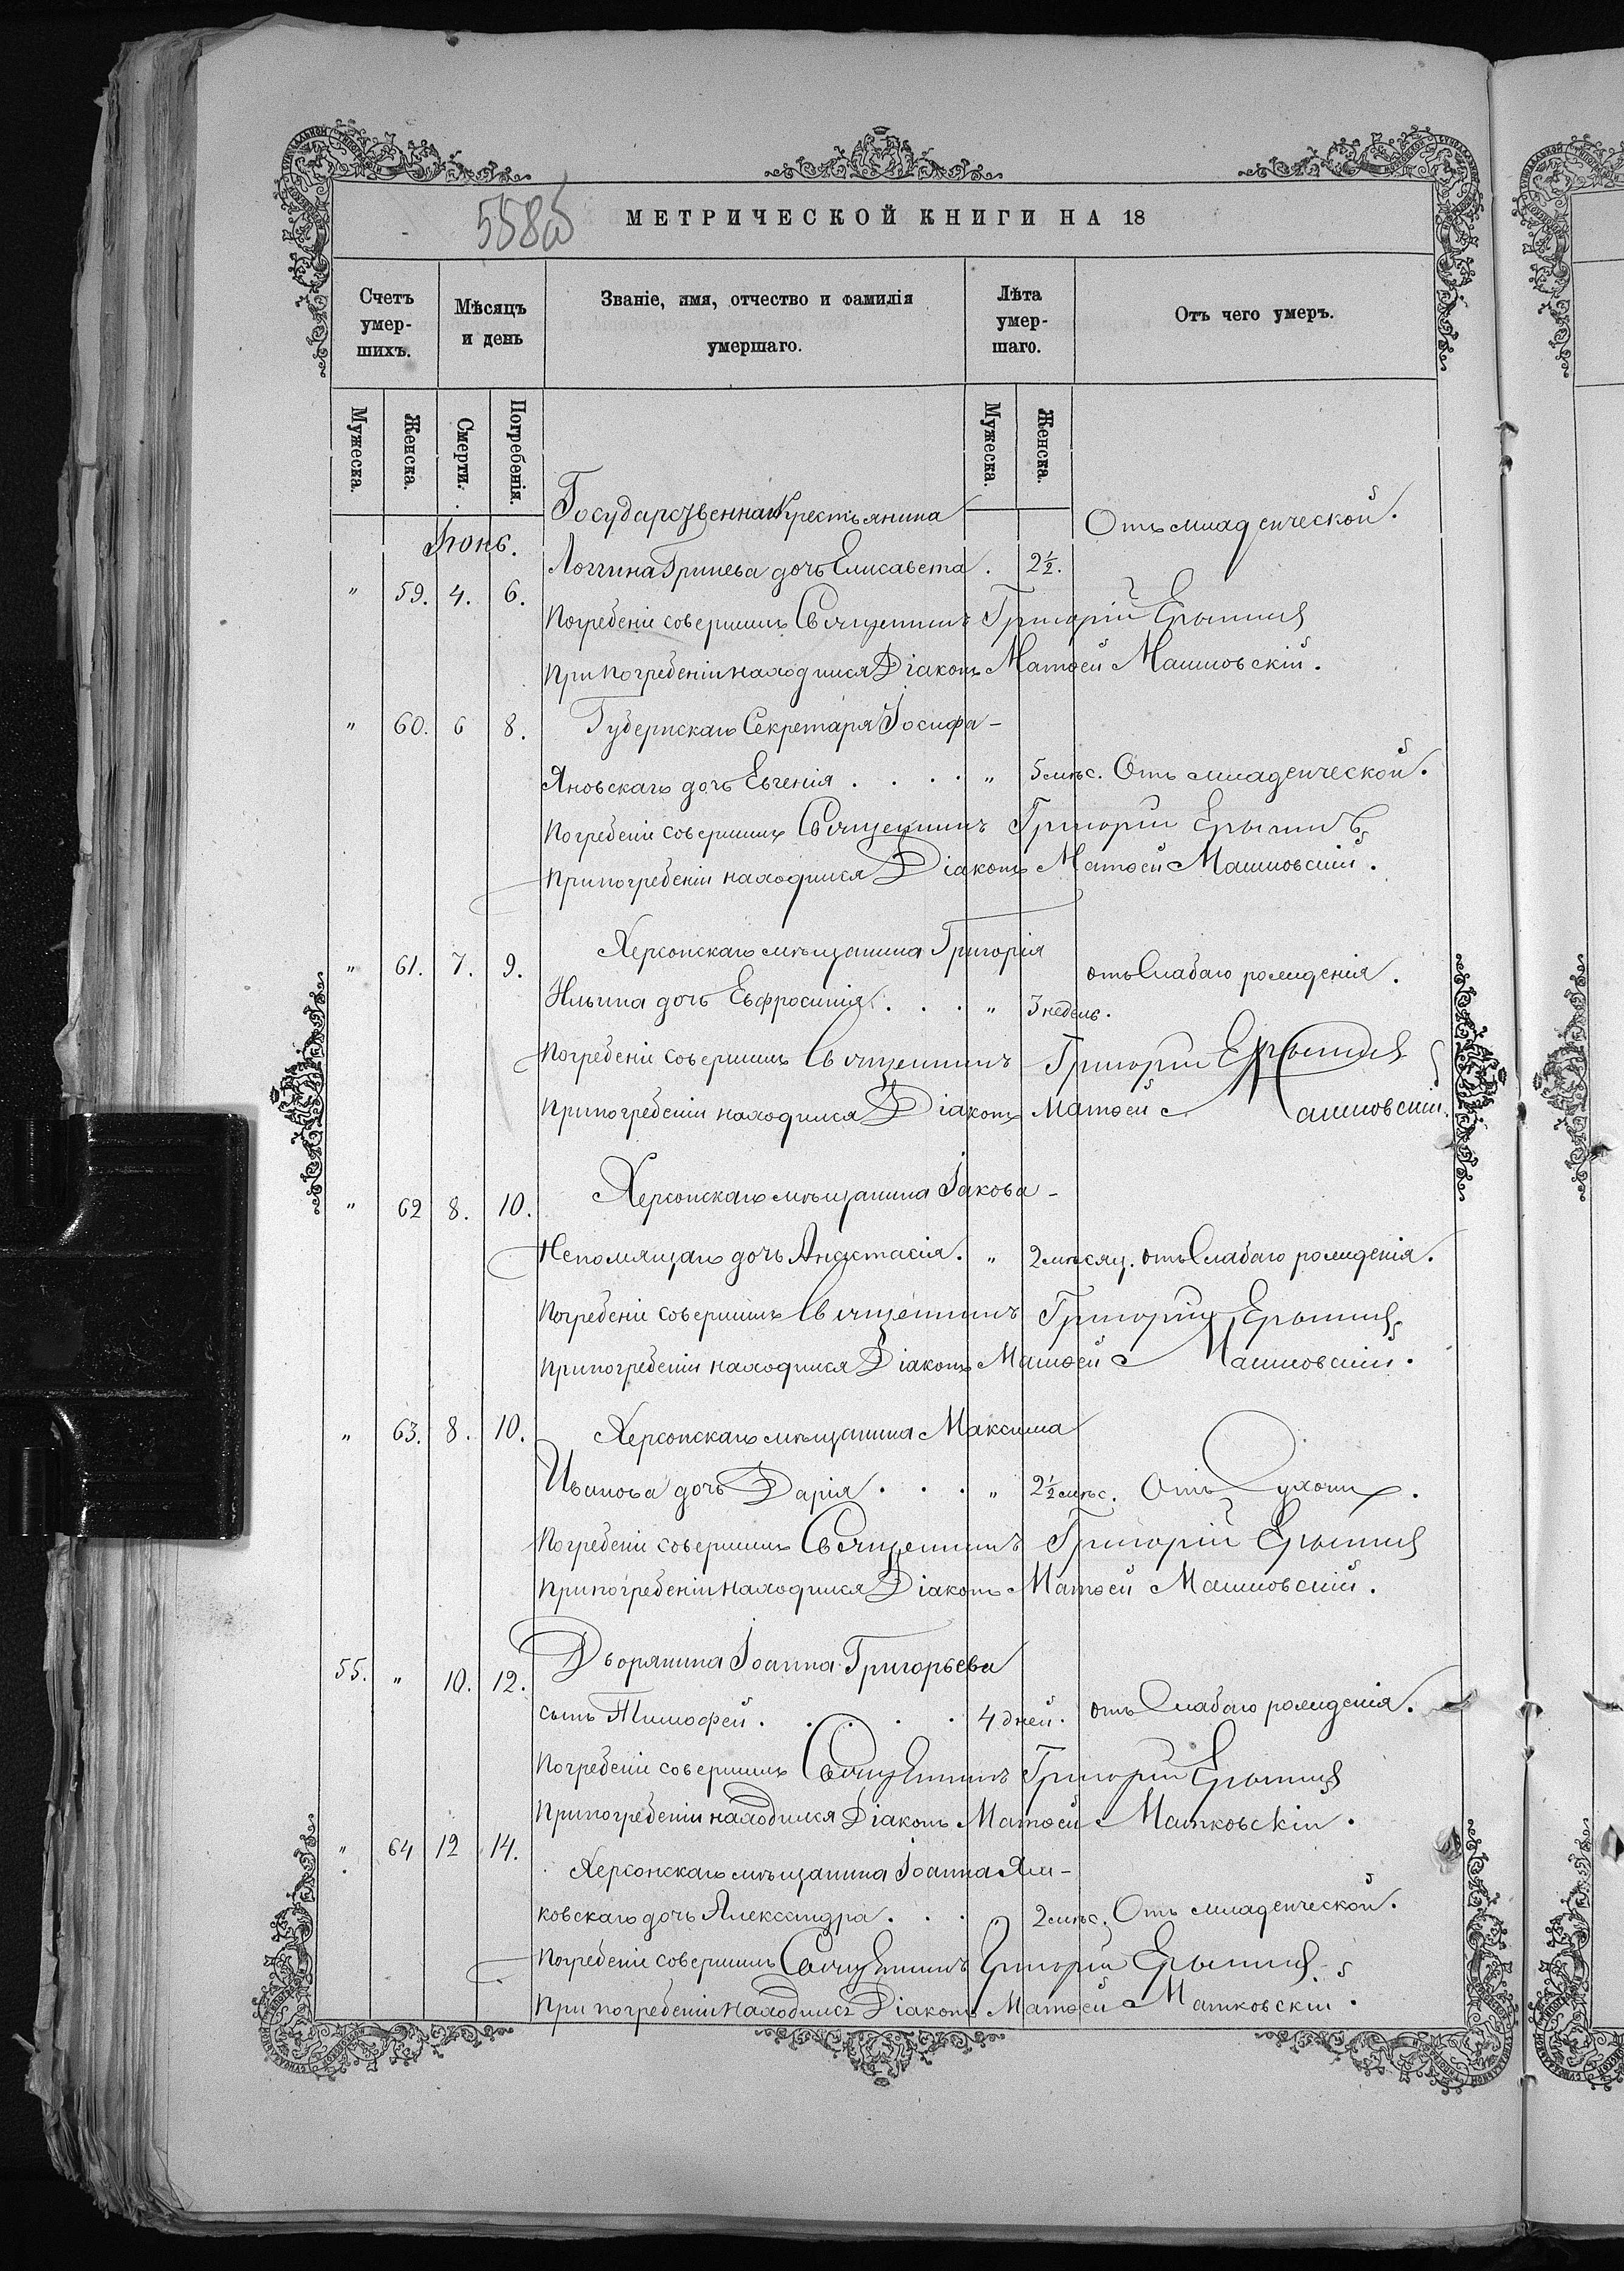 558об
МЕТРИЧЕСКОЙ КНИГИ НА 18
Счетъ умер-шихъ.
Мѣсяцъ и день
Званіе, имя, отчество и фамилія умершаго.
Лѣта умер-шаго.
Отъ чего умеръ.
Мужеска. Женска. Смерти. Погребенія. Мужеска. Женска.
Іюнь.
Государственнаго Крестьянина
Отъ младенческой.
" 59. 4. 6. Логгина Гринева дочь Елисавета . 2½.
Погребеніе совершилъ Священникъ Григорій
При погребеніи находился Діаконъ Матѳей Машковскій.
" 60. 6 8. Губернскаго Секретаря Іосифа-
Яновскаго дочь Евгенія . . . . " 5 мѣс. Отъ младенческой.
Погребеніе совершилъ Священникъ Григорій
При погребеніи находился Діаконъ Матѳей Машковскій.
" 61. 7. 9. Херсонскаго мѣщанина Григорія
Ильина дочь Евфросинія . . . " 3 недѣль. отъ Слабаго рожденія.
Погребеніе совершилъ Священникъ Григорій
При погребеніи находился Діаконъ Матѳей Машковскій.
" 62 8. 10. Херсонскаго мѣщанина Іакова-
Непомящаго дочь Анастасія. " 2 мѣсяц. отъ Слабаго рожденія.
Погребеніе совершилъ Священникъ Григорій
При погребеніи находился Діаконъ Матѳей Машковскій.
" 63. 8. 10. Херсонскаго мѣщанина Максима
Иванова дочь Дарія . . . " 2½ мѣс. Отъ Сухоты.
Погребеніе совершилъ Священникъ Григорій
При погребеніи находился Діаконъ Матѳей Машковскій.
55. " 10. 12. Дворянина Іоанна Григорьева
сынъ Тимофей . . . . . 4 дней. отъ Слабаго рожденія.
Погребеніе совершилъ Священникъ Григорій
При погребеніи находился Діаконъ Матѳей Машковскій.
" 64 12 14. Херсонскаго мѣщанина Іоанна Ям-
ковскаго дочь Александра . . . 2 мѣс. Отъ младенческой.
Погребеніе совершилъ Священникъ Григорій
При погребеніи находился Діаконъ Матѳей Машковскій.